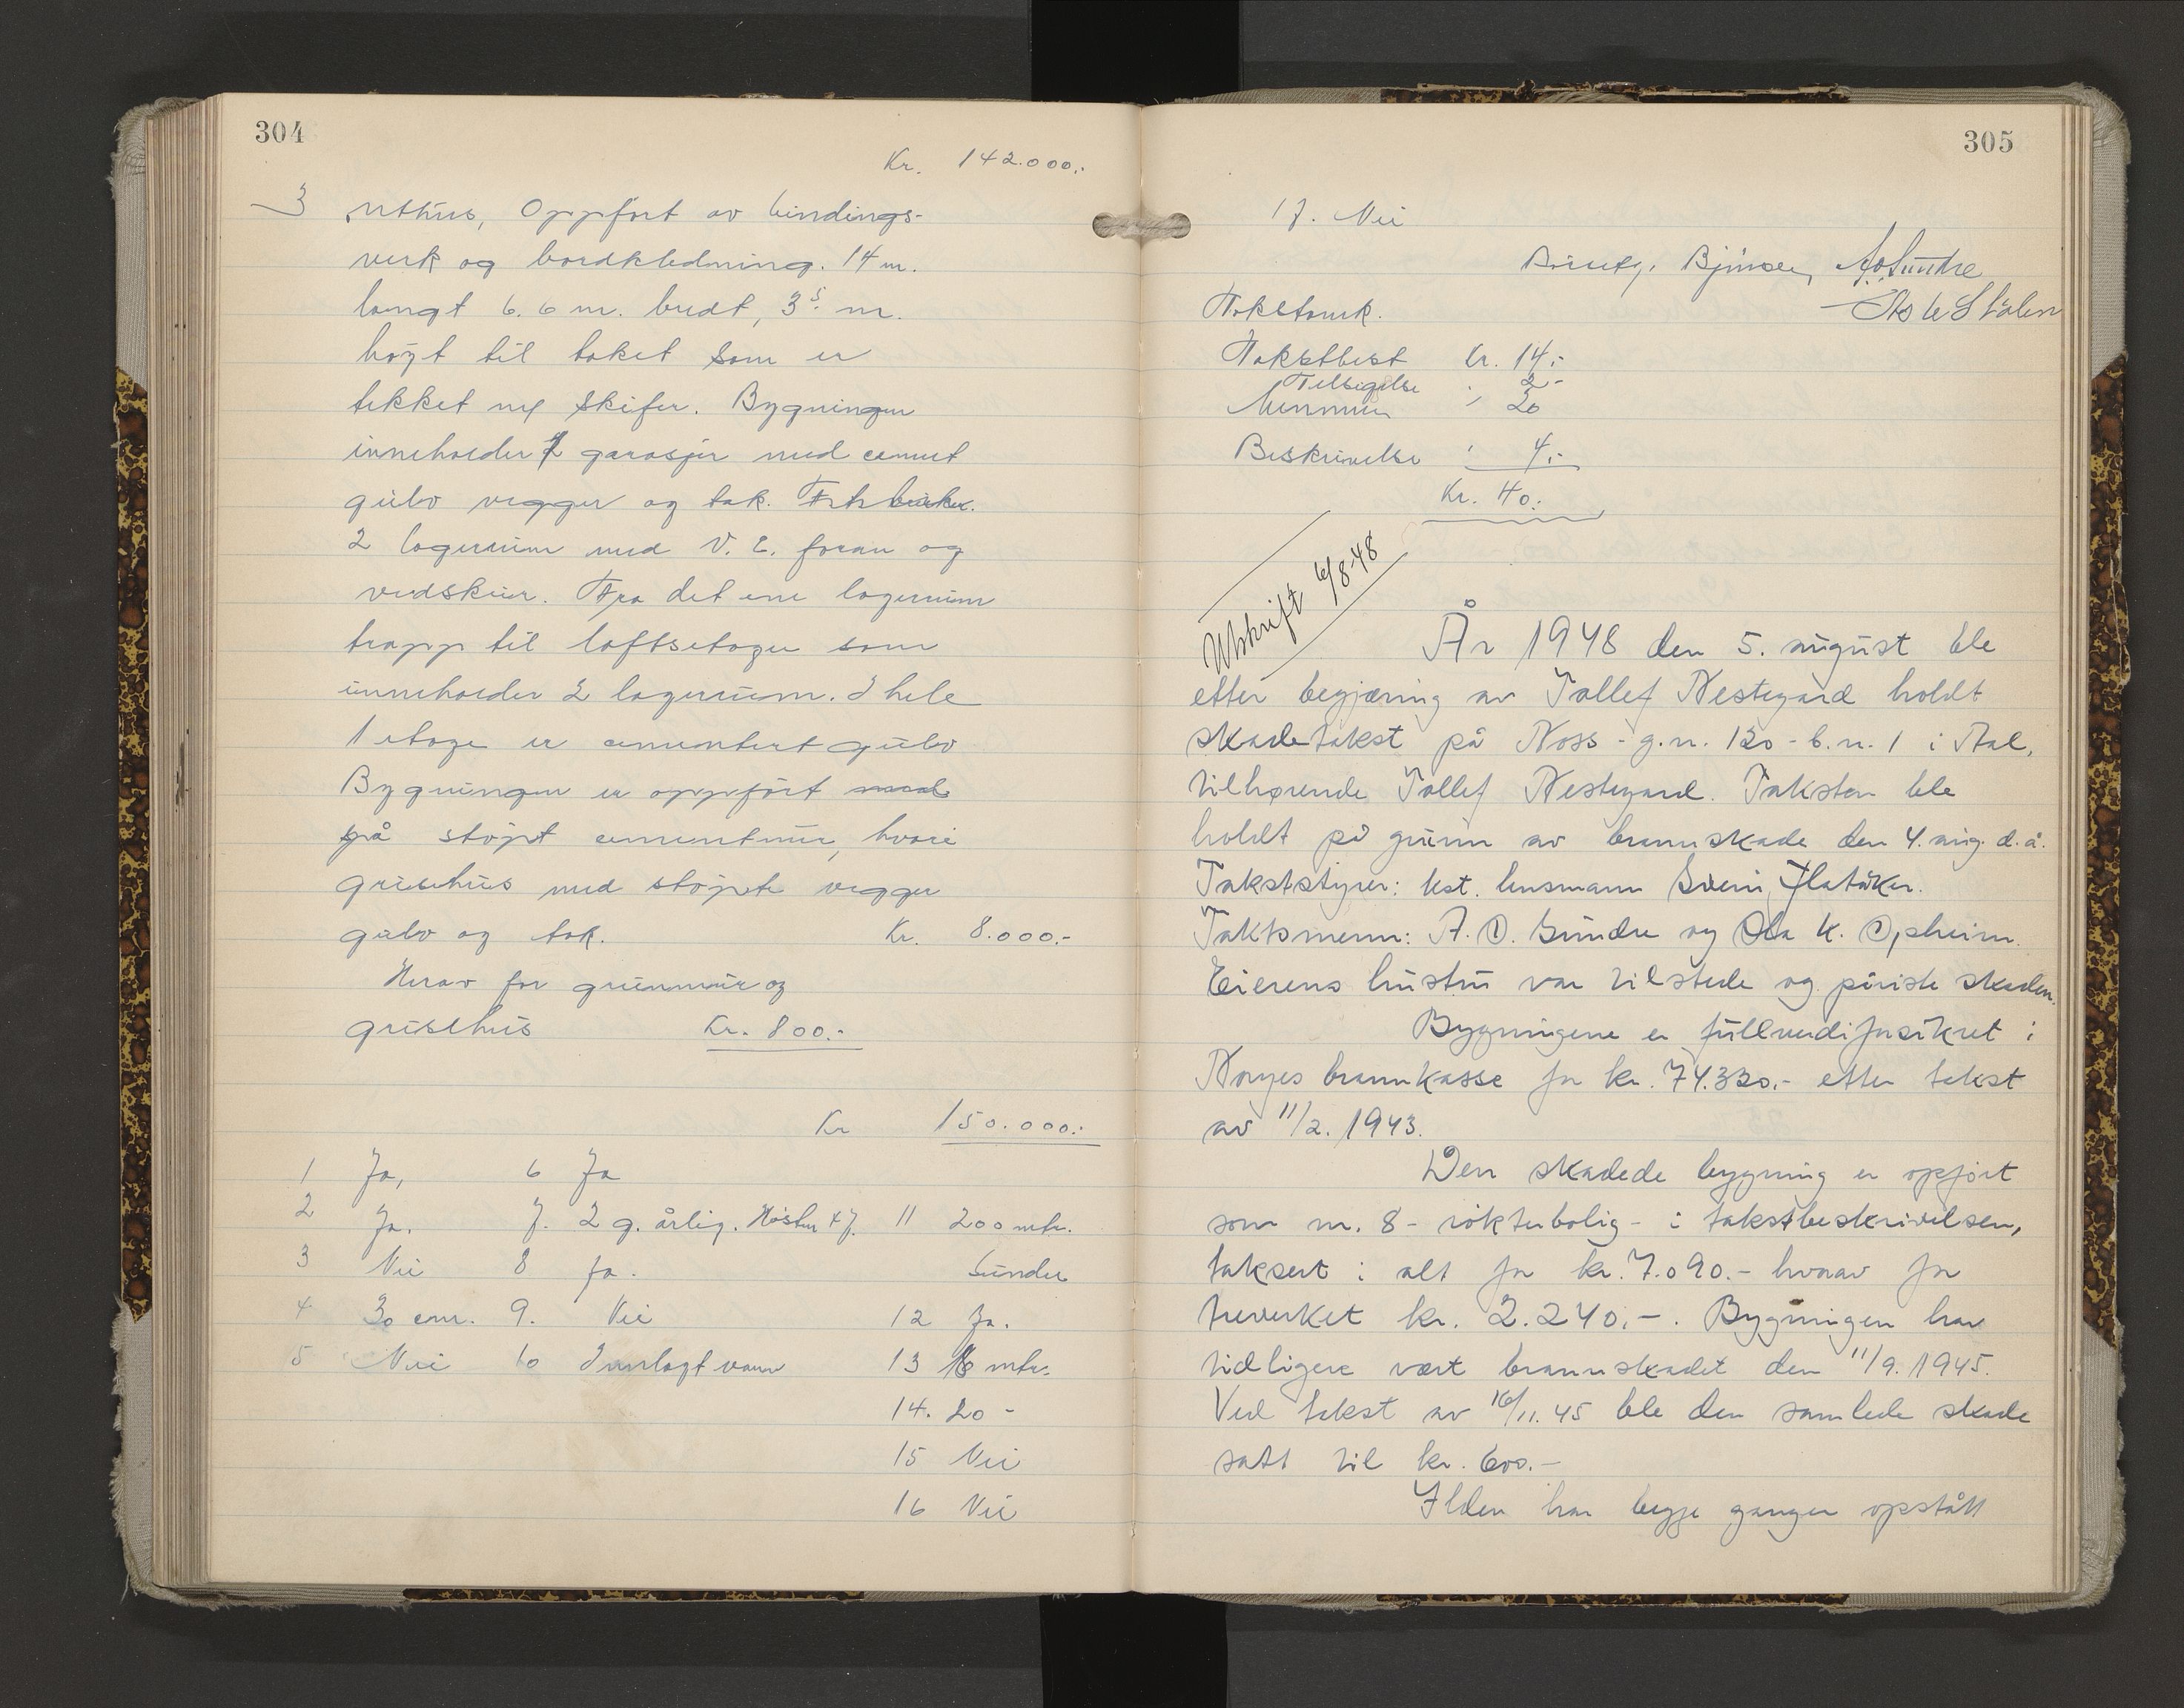 304
Kr. 142.000.-
3 uthus, Oppført av bindings-
verk og bordkledning. 14 m.
langt 6.6 m. bredt, 3⁵. m.
høyt til taket som er
tekket m/ skifer. Bygningen
inneholder 2 garasjer med cement
gulv vegger og tak.
2 lagerrum med V. E. foran og
vedskur. Fra det ene lagerrum
trapp til loftsetager som
inneholder 2 lagerrum. I hele
1 etage er cementert gulv
Bygningen er oppført med
på støpt cementmur, hvori
grisehus med støpte vegger
gulv og tak. Kr. 8.000.-
Herav for grunnmur og
grisehus Kr. 800.-
Kr 150.000.-
1 Ja, 6 Ja
2 Ja. 7. 2 g. årlig. 11 200 mtr.
3 Nei 8 Ja. Sundre
4 30 cm. 9. Nei 12 Ja.
5 Nei 10 Innlagt vann 13 mtr.
14. 20 -
15 Nei
16 Nei
305
17. Nei
Takstomk.
Takstbest kr. 14.-
Tilsigelse " 2.-
Mennene " 20
Beskrivelse " 4.-
Kr. 40.-
Utskrift 6/8-48
År 1948 den 5. august ble
etter begjæring av Tollef Nestegard holdt
skadetakst på Noss - g.n. 120 - b.n. 1 i Aal,
tilhørende Tollef Nestegard. Taksten ble
holdt på grunn av brannskade den 4. aug. d.å.
Takststyrer: kst. lensmann Svein Flatåker.
Takstmenn: A. O. Sundre og Ola K. Opheim.
Eierens hustru var tilstede og påviste skaden.
Bygningene er fullverdiforsikret i
Norges brannkasse for kr. 74.320.- etter takst
av 11/2. 1943.
Den skadede bygning er opført
som nr. 8 - røkterbolig - i takstbeskrivelsen,
taksert i alt for kr. 7.090.- hvorav for
treverket kr. 2.240.-. Bygningen har
tidligere vært brannskadet den 11/9. 1945.
Ved takst av 16/11. 45 ble den samlede skade
satt til kr. 600.-
Ilden har begge ganger opstått